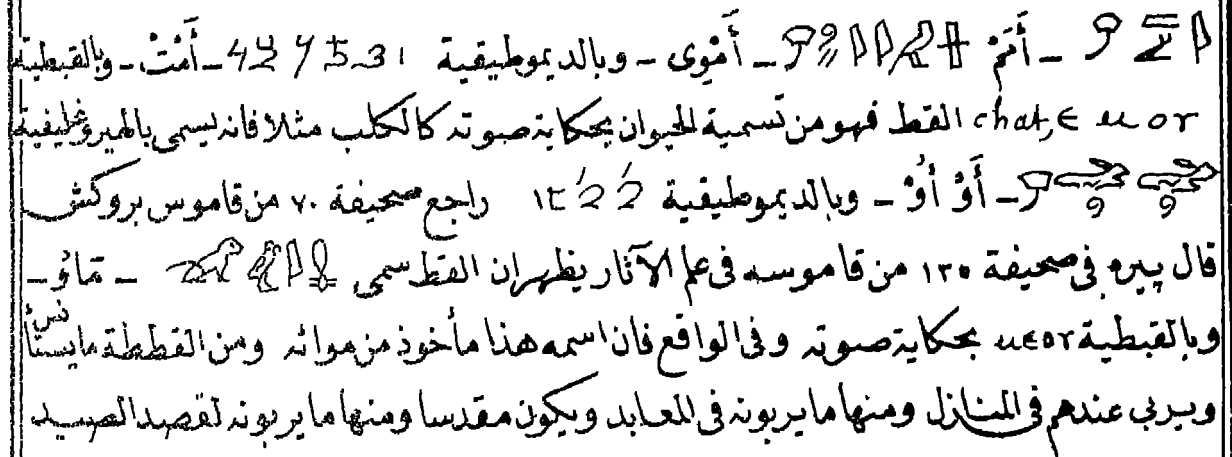 أَتَمْ ـ أَمْوِى ـ وبالديموطيقية ـ أَمْتْ ـ وبالقبطية
chat, ϵ ⲙ ⲟⲩ القط فهو من تسمية الحيوان بحكاية صوته كالكلب مثلا فانه يسمى بالهيروغليفية
ـ أَوْ أُوْ ـ وبالديموطيقية راجع صحيفة ٧٠ من قاموس بروكش
قال پيره فى صحيفة ١٣٥ من قاموسه فى علم الآثار يظهر ان القط سمى ـ مَاوُ ـ
وبالقبطية ⲙⲉⲟⲩ بحكاية صوته وفى الواقع فان اسمه هذا مأخوذ من موائه ومن القططة ما يستأنس
ويربى عندهم فى المنازل ومنها ما يربونه فى المعابد ويكون مقدسا ومنها ما يربونه لقصد الصيد